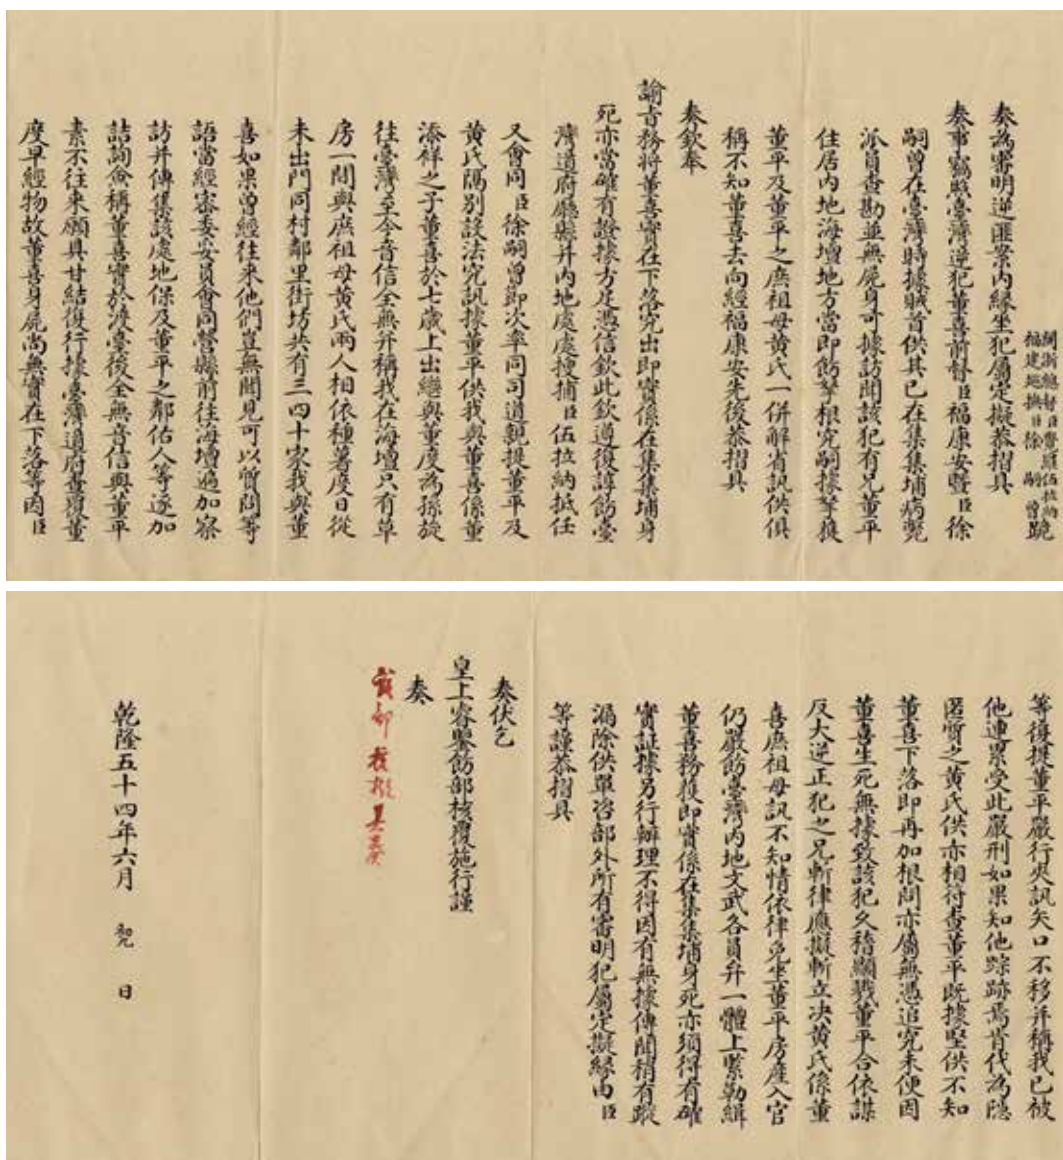 閩浙總督臣覺羅伍拉納
福建巡撫臣徐嗣曾跪
奏為審明逆匪案內緣坐犯屬定擬恭摺具
奏事竊照臺灣逆犯董喜前督臣福康安暨臣徐
嗣曾在臺灣時據賊首供其已在集集埔病斃
派員查勘並無屍身可據訪聞該犯有兄董平
住居內地海壇地方當即飭拏根究嗣據拏獲
董平及董平之庶祖母黃氏一併解省訊供俱
稱不知董喜去向經福康安先後恭摺具
奏欽奉
諭旨務將董喜實在下落究出即實係在集集埔身
死亦當確有證據方足憑信欽此欽遵復諄飭臺
灣道府廳縣并內地處處搜捕臣伍拉納抵任
又會同臣徐嗣曾即次率同司道親提董平及
黃氏隔別設法究訊據董平供我與董喜係董
添祥之子董喜於七歲上出繼與董度為孫旋
往臺灣至今音信全無并稱我在海壇只有草
房一間與庶祖母黃氏兩人相依種薯度日從
未出門同村鄰里街坊共有三四十家我與董
喜如果曾經往來他們豈無聞見可以質問等
語當經密委妥員會同營縣前往海壇遍加察
訪并傳集該處地保及董平之鄰佑人等逐加
詰詢僉稱董喜實於渡臺後全無音信與董平
素不往來願具甘結復行據臺灣道府查覆董
度早經物故董喜身屍尚無實在下落等因臣
等復提董平嚴行夾訊矢口不移并稱我已被
他連累受此嚴刑如果知他踪跡焉肯代為隱
匿質之黃氏供亦相符查董平既據堅供不知
董喜下落即再加根問亦屬無憑追究未便因
董喜生死無據致該犯久稽顯戮董平合依謀
反大逆正犯之兄斬律應擬斬立決黃氏係董
喜庶祖母訊不知情依律免坐董平房產入官
仍嚴飭臺灣內地文武各員弁一體上緊勒緝
董喜務獲即實係在集集埔身死亦須得有確
實証據另行辦理不得因有無據傳聞稍有踈
漏除供單咨部外所有審明犯屬定擬緣由臣
等謹恭摺具
奏伏乞
皇上睿鑒飭部核覆施行謹
奏
該部核擬具奏
乾隆五十四年六月 初九 日